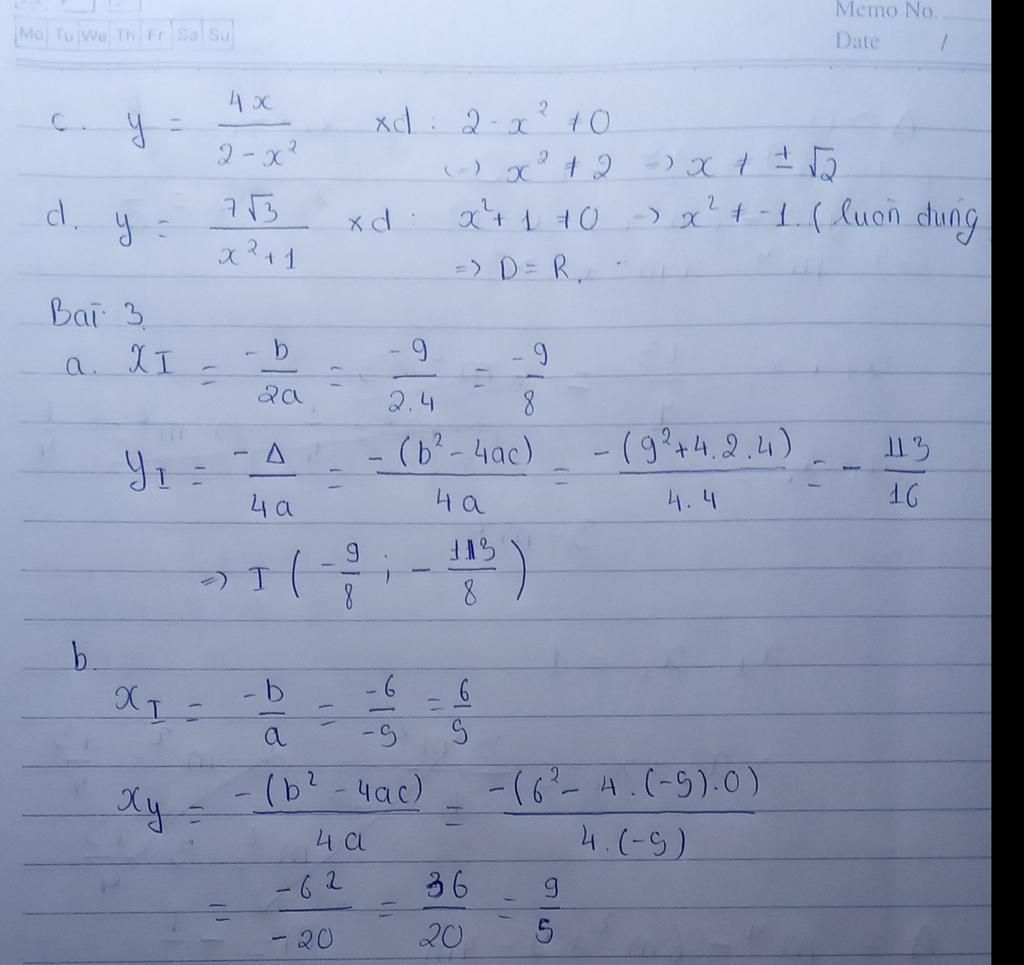 Memo No.
Mo Tu We Th Fr Sa Su
Date /
c. y = 4x / (2 - x²) xd : 2 - x² ≠ 0
<-> x² ≠ 2 -> x ≠ ± √2
d. y = 7√3 / (x² + 1) xd : x² + 1 ≠ 0 -> x² ≠ -1. ( luôn đúng
=> D = R.
Bài 3.
a. x_I = -b / 2a = -9 / 2.4 = -9 / 8
y_I = -Δ / 4a = -(b² - 4ac) / 4a = -(9² + 4.2.4) / 4.4 = - 113 / 16
=> I ( - 9/8 ; - 113/8 )
b.
x_I = -b / a = -6 / -5 = 6 / 5
xy = -(b² - 4ac) / 4a = -(6² - 4.(-5).0) / 4.(-5)
= -6² / -20 = 36 / 20 = 9 / 5